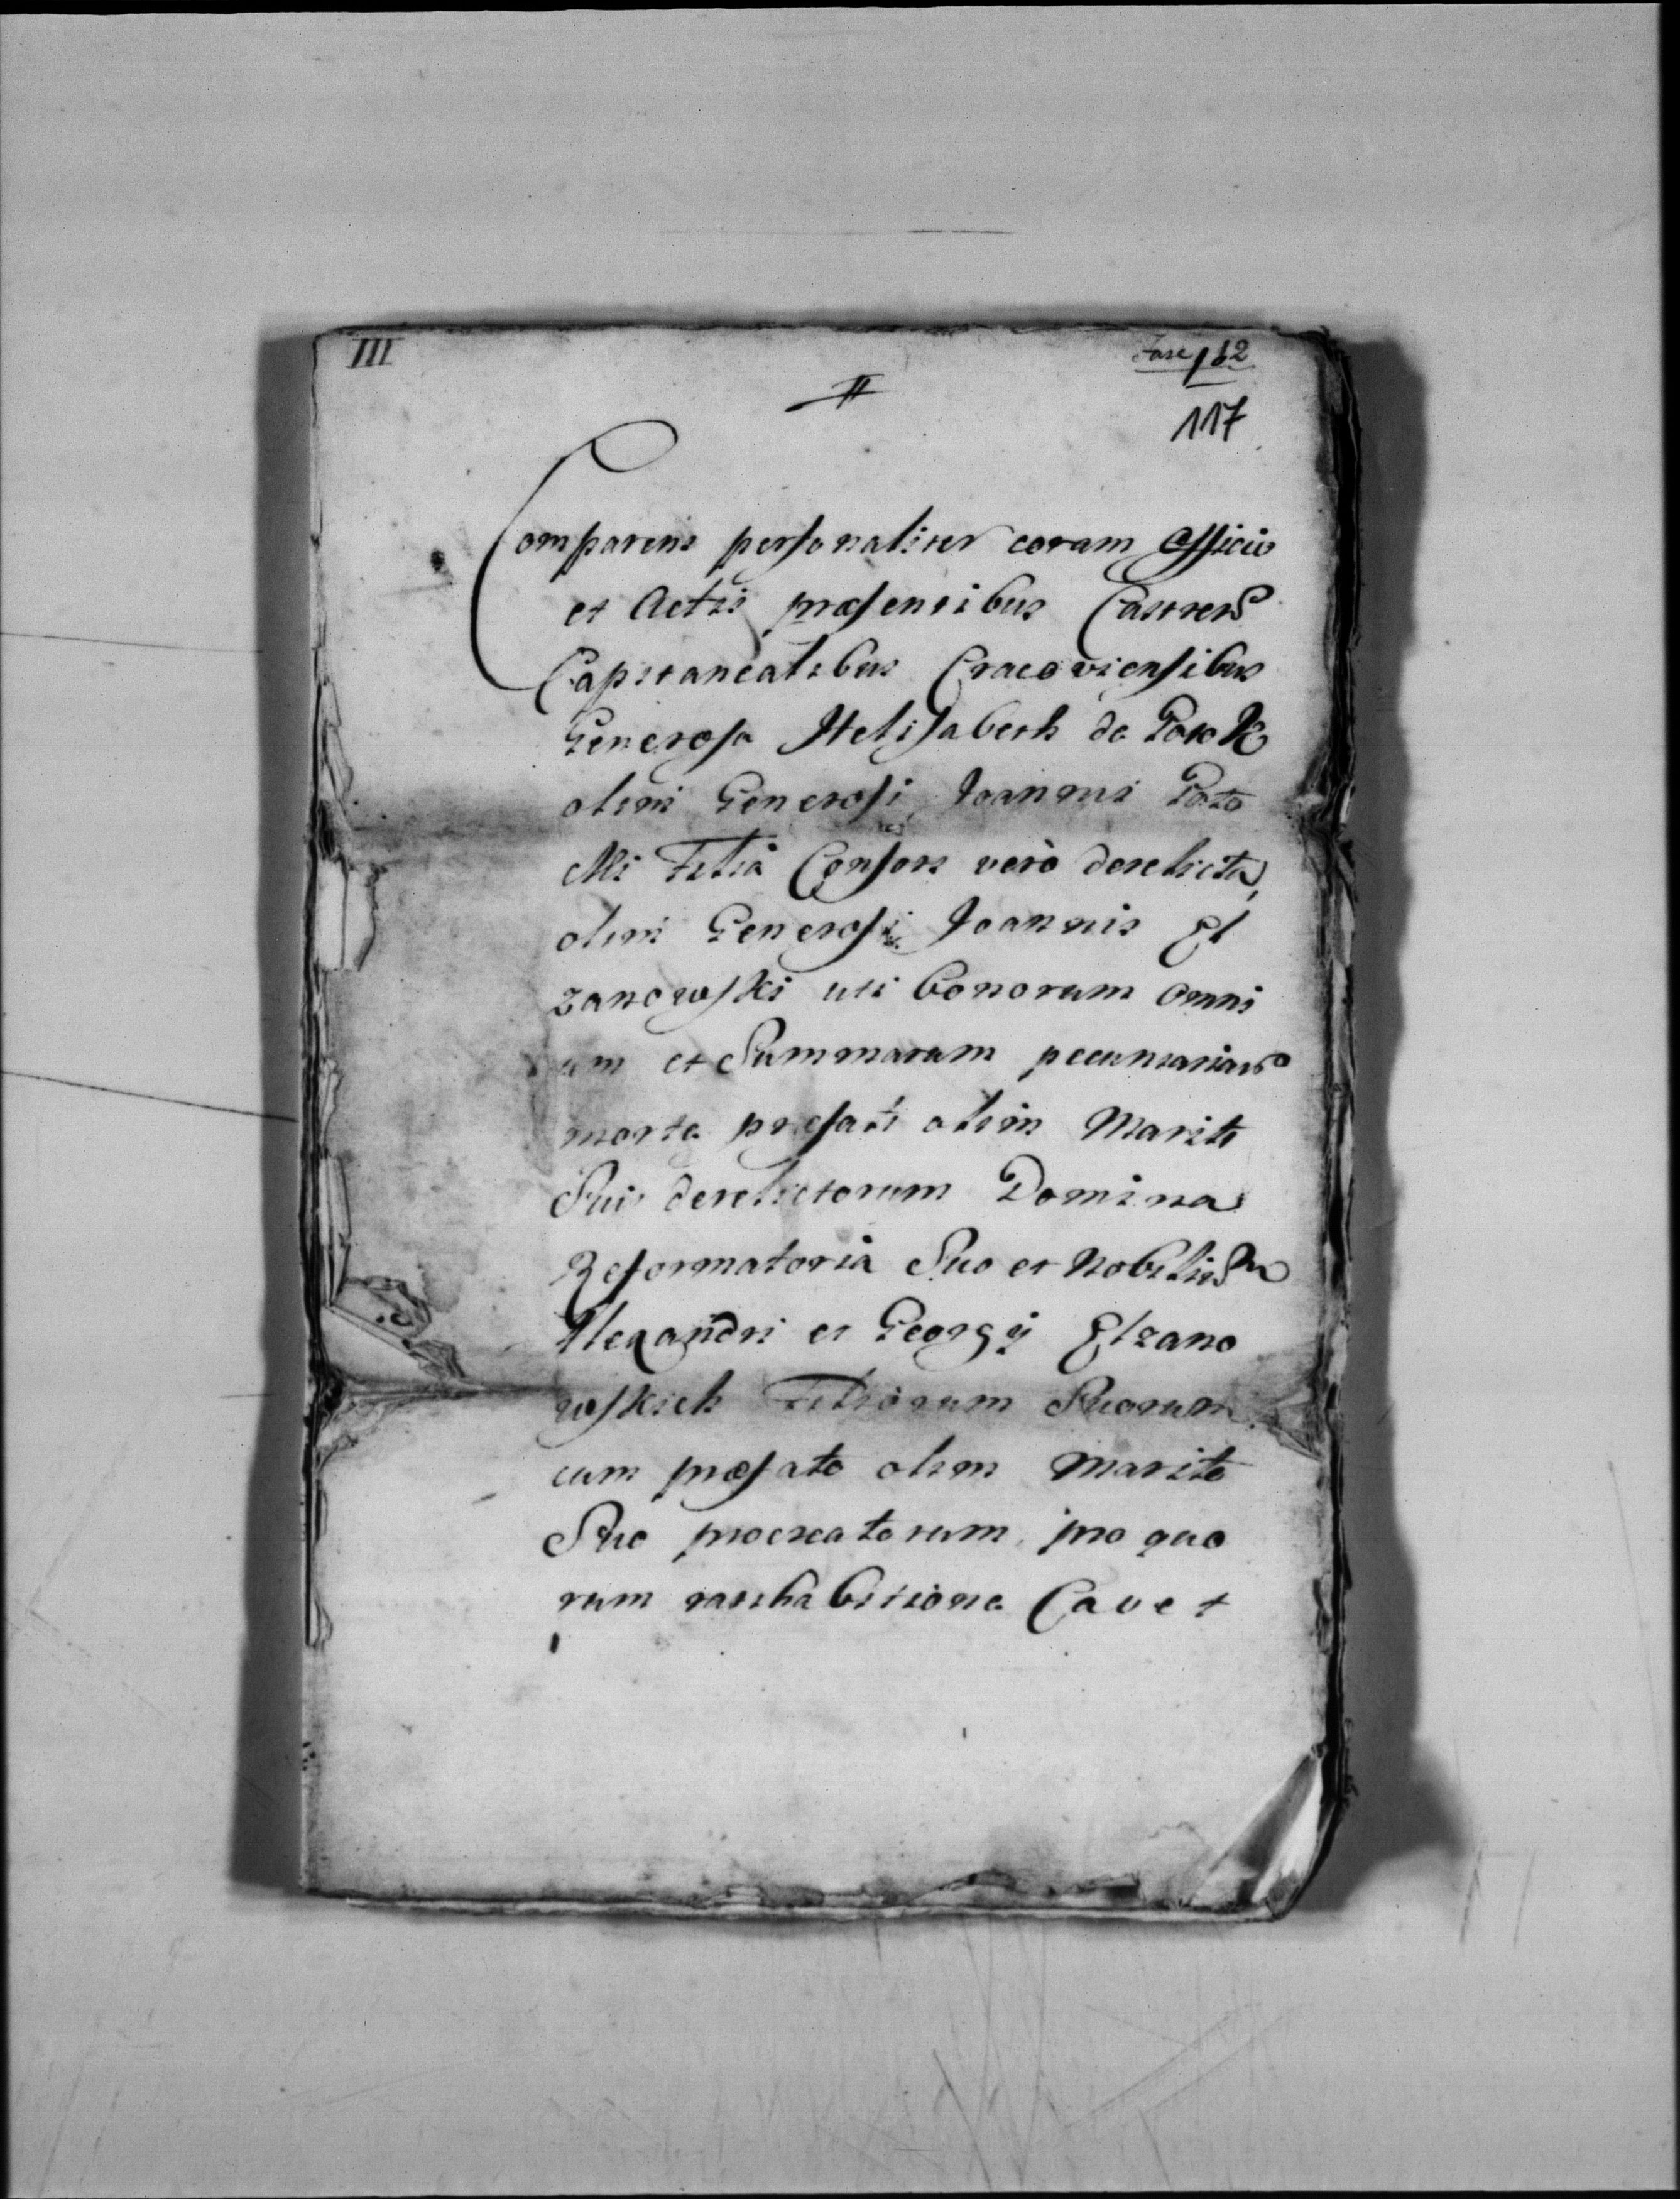 III
Fasc 162
II
117
Comparens personaliter coram Officio
et Actis præsentibus Castren
Capitanealibus Cracoviensibus
Generosa Helisabeth de Potok
olim Generosi Joannis Poto
cki Filia Consors verò derelicta,
olim Generosi Joannis El
zanowski uti bonorum omni
um et Summarum pecuniaria
morte præfati olim Mariti
Sui derelictorum Domina
Reformatoria Suo et Nobilium
Alexandri et Georgij Elzano
wskich Filiorum Suorum
cum præfato olim Marito
Suo procreatorum, pro quo
rum rathabitione Cavet